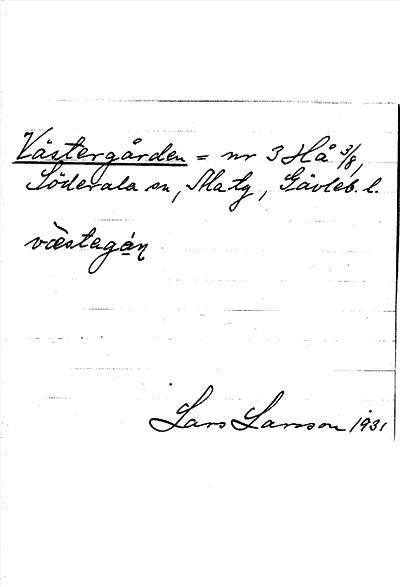 Västergården = nr 3 Hå 3/8,
Söderala sn, Matg, Gävleb. l.
væstegá̱ɳ
Lars Larsson 1931